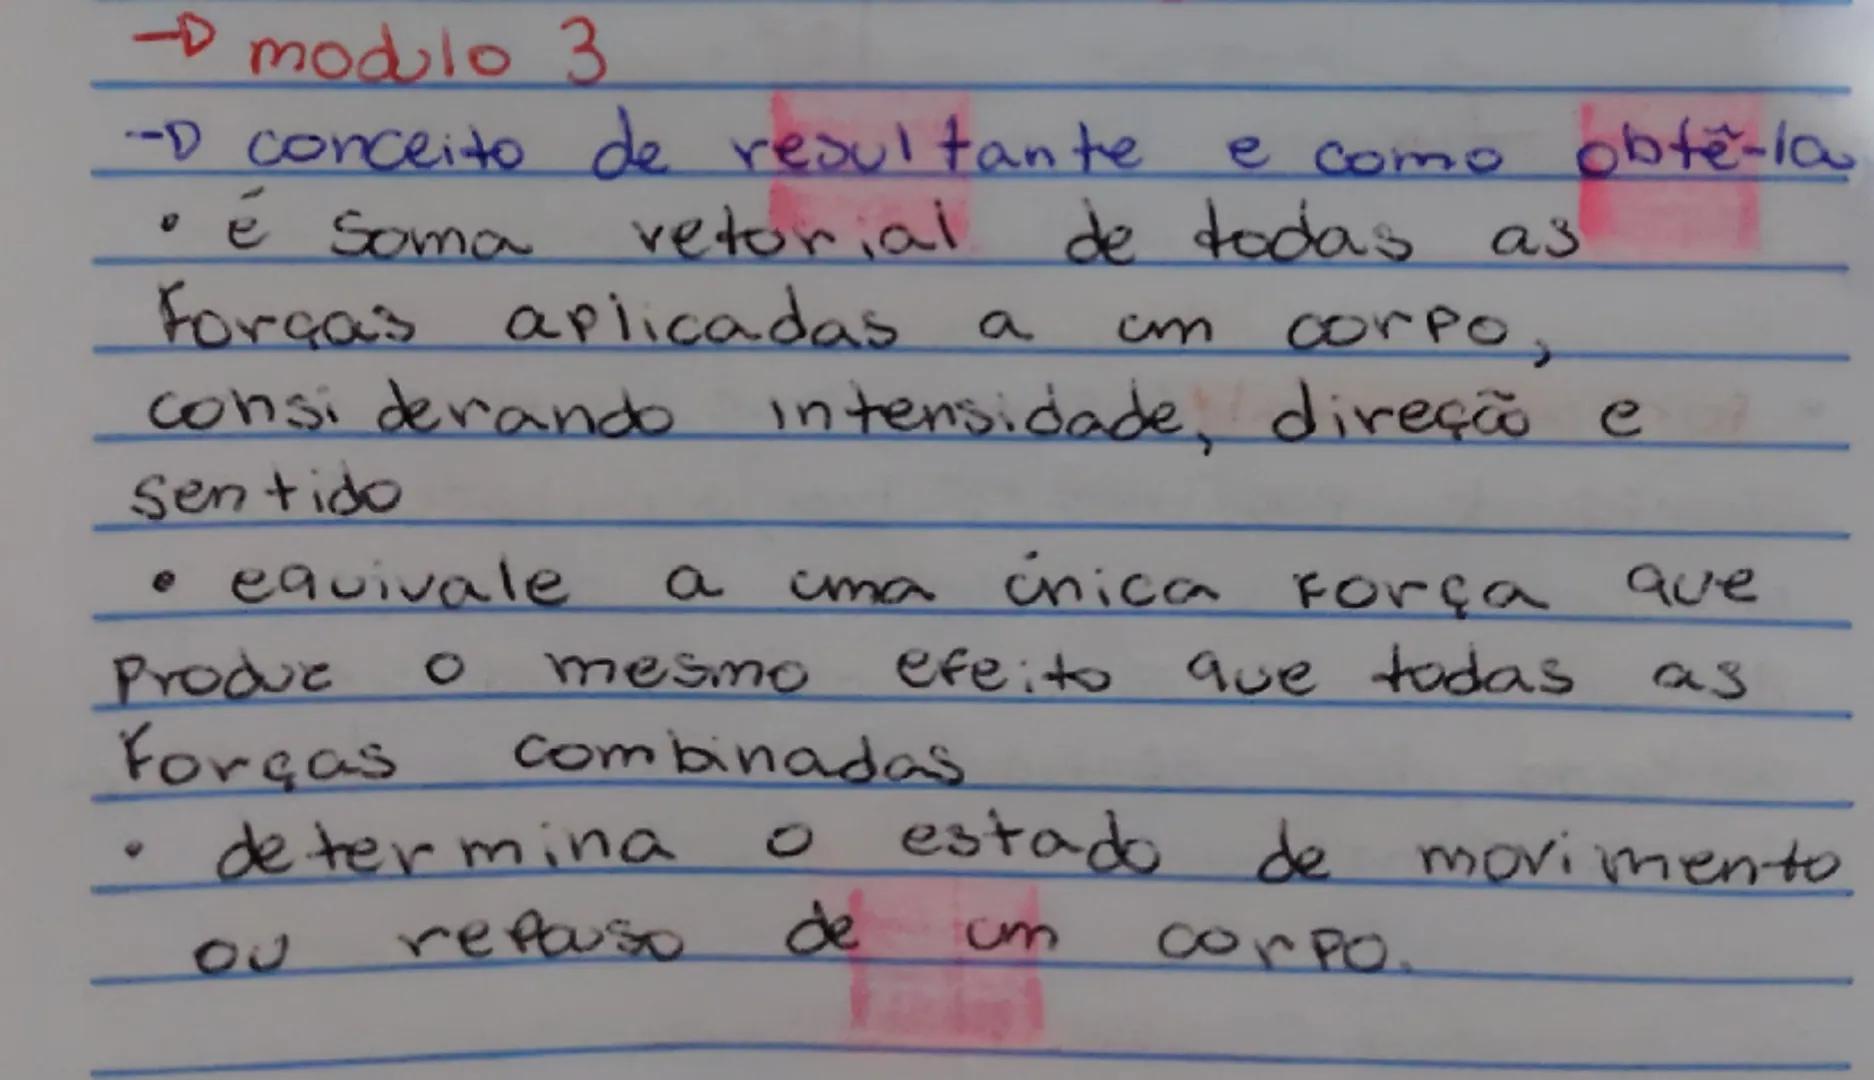 → modulo 3
→ conceito de resultante e como obtê-la
• é soma vetorial de todas as
forças aplicadas a um corpo,
considerando intensidade, direção e
sentido
• equivale a uma única força que
produz o mesmo efeito que todas as
forças combinadas
• determina o estado de movimento
ou repouso de um corpo.